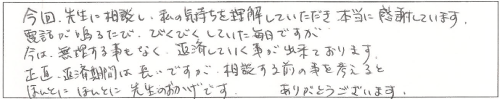 今回、先生に相談し、私の気持ちを理解していただき本当に感謝しています。
電話が鳴るたび、びくびくしていた毎日ですが
今は、無理する事もなく、返済していく事が出来ております。
正直、返済期間は長いですが、相談する前の事を考えると
ほんとに ほんとに 先生のおかげです。 ありがとうございます。